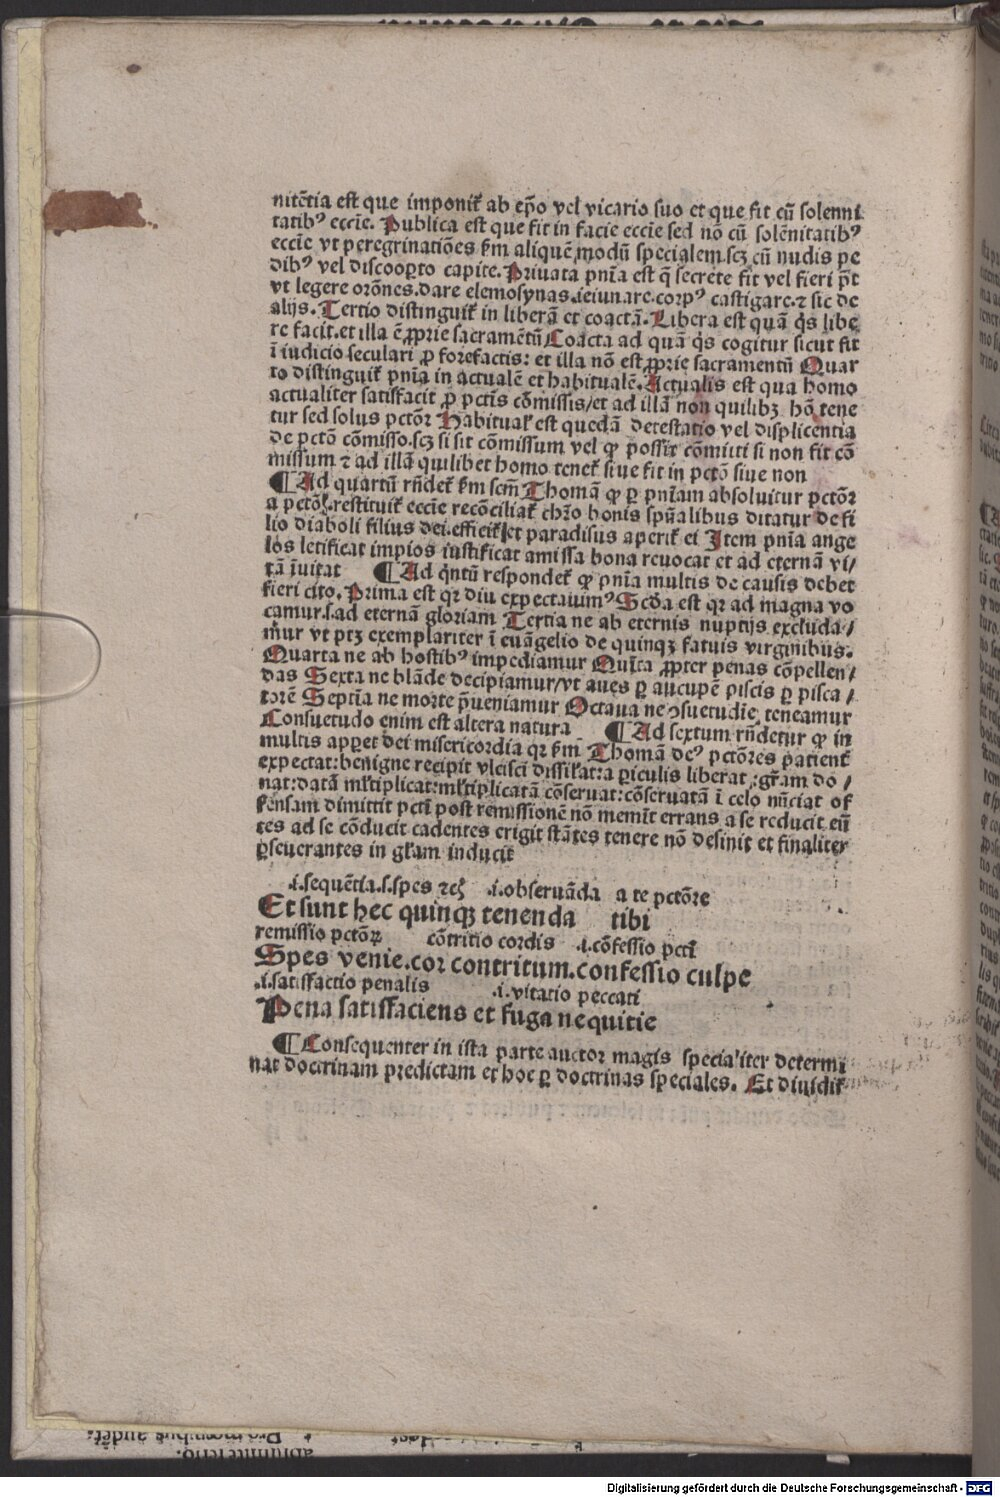 nitētia est que imponit᷑ ab ep̄o vel vicario suo et que fit cū solenni
tatibꝰ eccīe. Publica est que fit in facie eccīe sed nō cū solēnitatibꝰ
eccīe vt peregrinatiōes ẜm aliquē modū specialem.scꝫ cū nudis pe
dibꝰ vel discooꝑto capite. Priuata pn̄ia est q̄ secrete fit vel fieri pt̄
vt legere orōnes.dare elemosynas.ieiunare.corpꝰ castigare.⁊ sic de
alijs. Tertio distinguit᷑ in liberā et coactā. Libera est quā q̇s libe
re facit.et illa ē ꝓprie sacramētū Coacta ad quā q̇s cogitur sicut fit
ī iudicio seculari ꝓ forefactis: et illa nō est ꝓprie sacramentū Quar
to distinguit᷑ pn̄ia in actualē et habitualē. Actualis est qua homo
actualiter satisfacit ꝓ pctīs cōmissis/et ad illā non quilibꝫ hō tene
tur sed solus pctōꝛ Habitual᷑ est quedā detestatio vel displicentia
de pctō cōmisso.scꝫ si sit cōmissum vel ꝙ possit cōmitti si non fit cō
missum ⁊ ad illā quilibet homo tenet᷑ siue fit in pctō siue non
¶ Ad quartū rn̄det᷑ ẜm scm̄ Thomā ꝙ ꝑ pn̄iam absoluitur pctōꝛ
a pctōꝝ.restituit᷑ eccīe recōciliat᷑ chrō bonis spūalibus ditatur de fi
lio diaboli filius dei.efficit᷑ et paradisus aperit᷑ ei Item pn̄ia ange
los letificat impios iustificat amissa bona reuocat et ad eternā vi/
tā īuitat ¶ Ad q̇ntū respondet᷑ ꝙ pn̄ia multis de causis debet
fieri cito. Prima est qꝛ diu expectauimꝰ Scd̄a est qꝛ ad magna vo
camur.s.ad eternā gloriam Tertia ne ab eternis nuptijs excluda/
mur vt ptꝫ exemplariter ī euāgelio de quinqꝫ fatuis virginibus.
Quarta ne ab hostibꝰ impediamur Quīta ꝓpter penas cōpellen/
das Sexta ne blāde decipiamur/vt aues ꝑ aucupē piscis ꝑ pisca/
torē Septīa ne morte p̄ueniamur Octaua ne ↄsuetudīe teneamur
Consuetudo enim est altera natura ¶ Ad sextum rn̄detur ꝙ in
multis apꝑet dei misericordia qꝛ ẜm Thomā deꝰ pctōres patient᷑
expectat:benigne recipit vlcisci dissilat:a ꝑiculis liberat :gr̄am do/
nat:datā ml̄tiplicat:ml̄tiplicatā cōseruat:cōseruatā ī celo nūciat of
fensam dimittit pctī post remissionē nō memīt errans a se reducit eū
tes ad se cōducit cadentes erigit stātes tenere nō desinit et finaliter
ꝑseuerantes in gl̄iam inducit
.i.sequētia.s.spes ⁊cꝭ .i.obseruāda a te pctōre
Et sunt hec quinqꝫ tenenda tibi
remissio pctōꝝ cōtritio cordis .i.cōfessio pctī
Spes venie.cor contritum.confessio culpe
.i.satisfactio penalis .i.vitatio peccati
Pena satisfaciens et fuga nequitie
¶ Consequenter in ista parte auctor magis specialiter determi
nat doctrinam predictam et hoc ꝑ doctrinas speciales. Et diuidit᷑
Digitalisierung gefördert durch die Deutsche Forschungsgemeinschaft - DFG